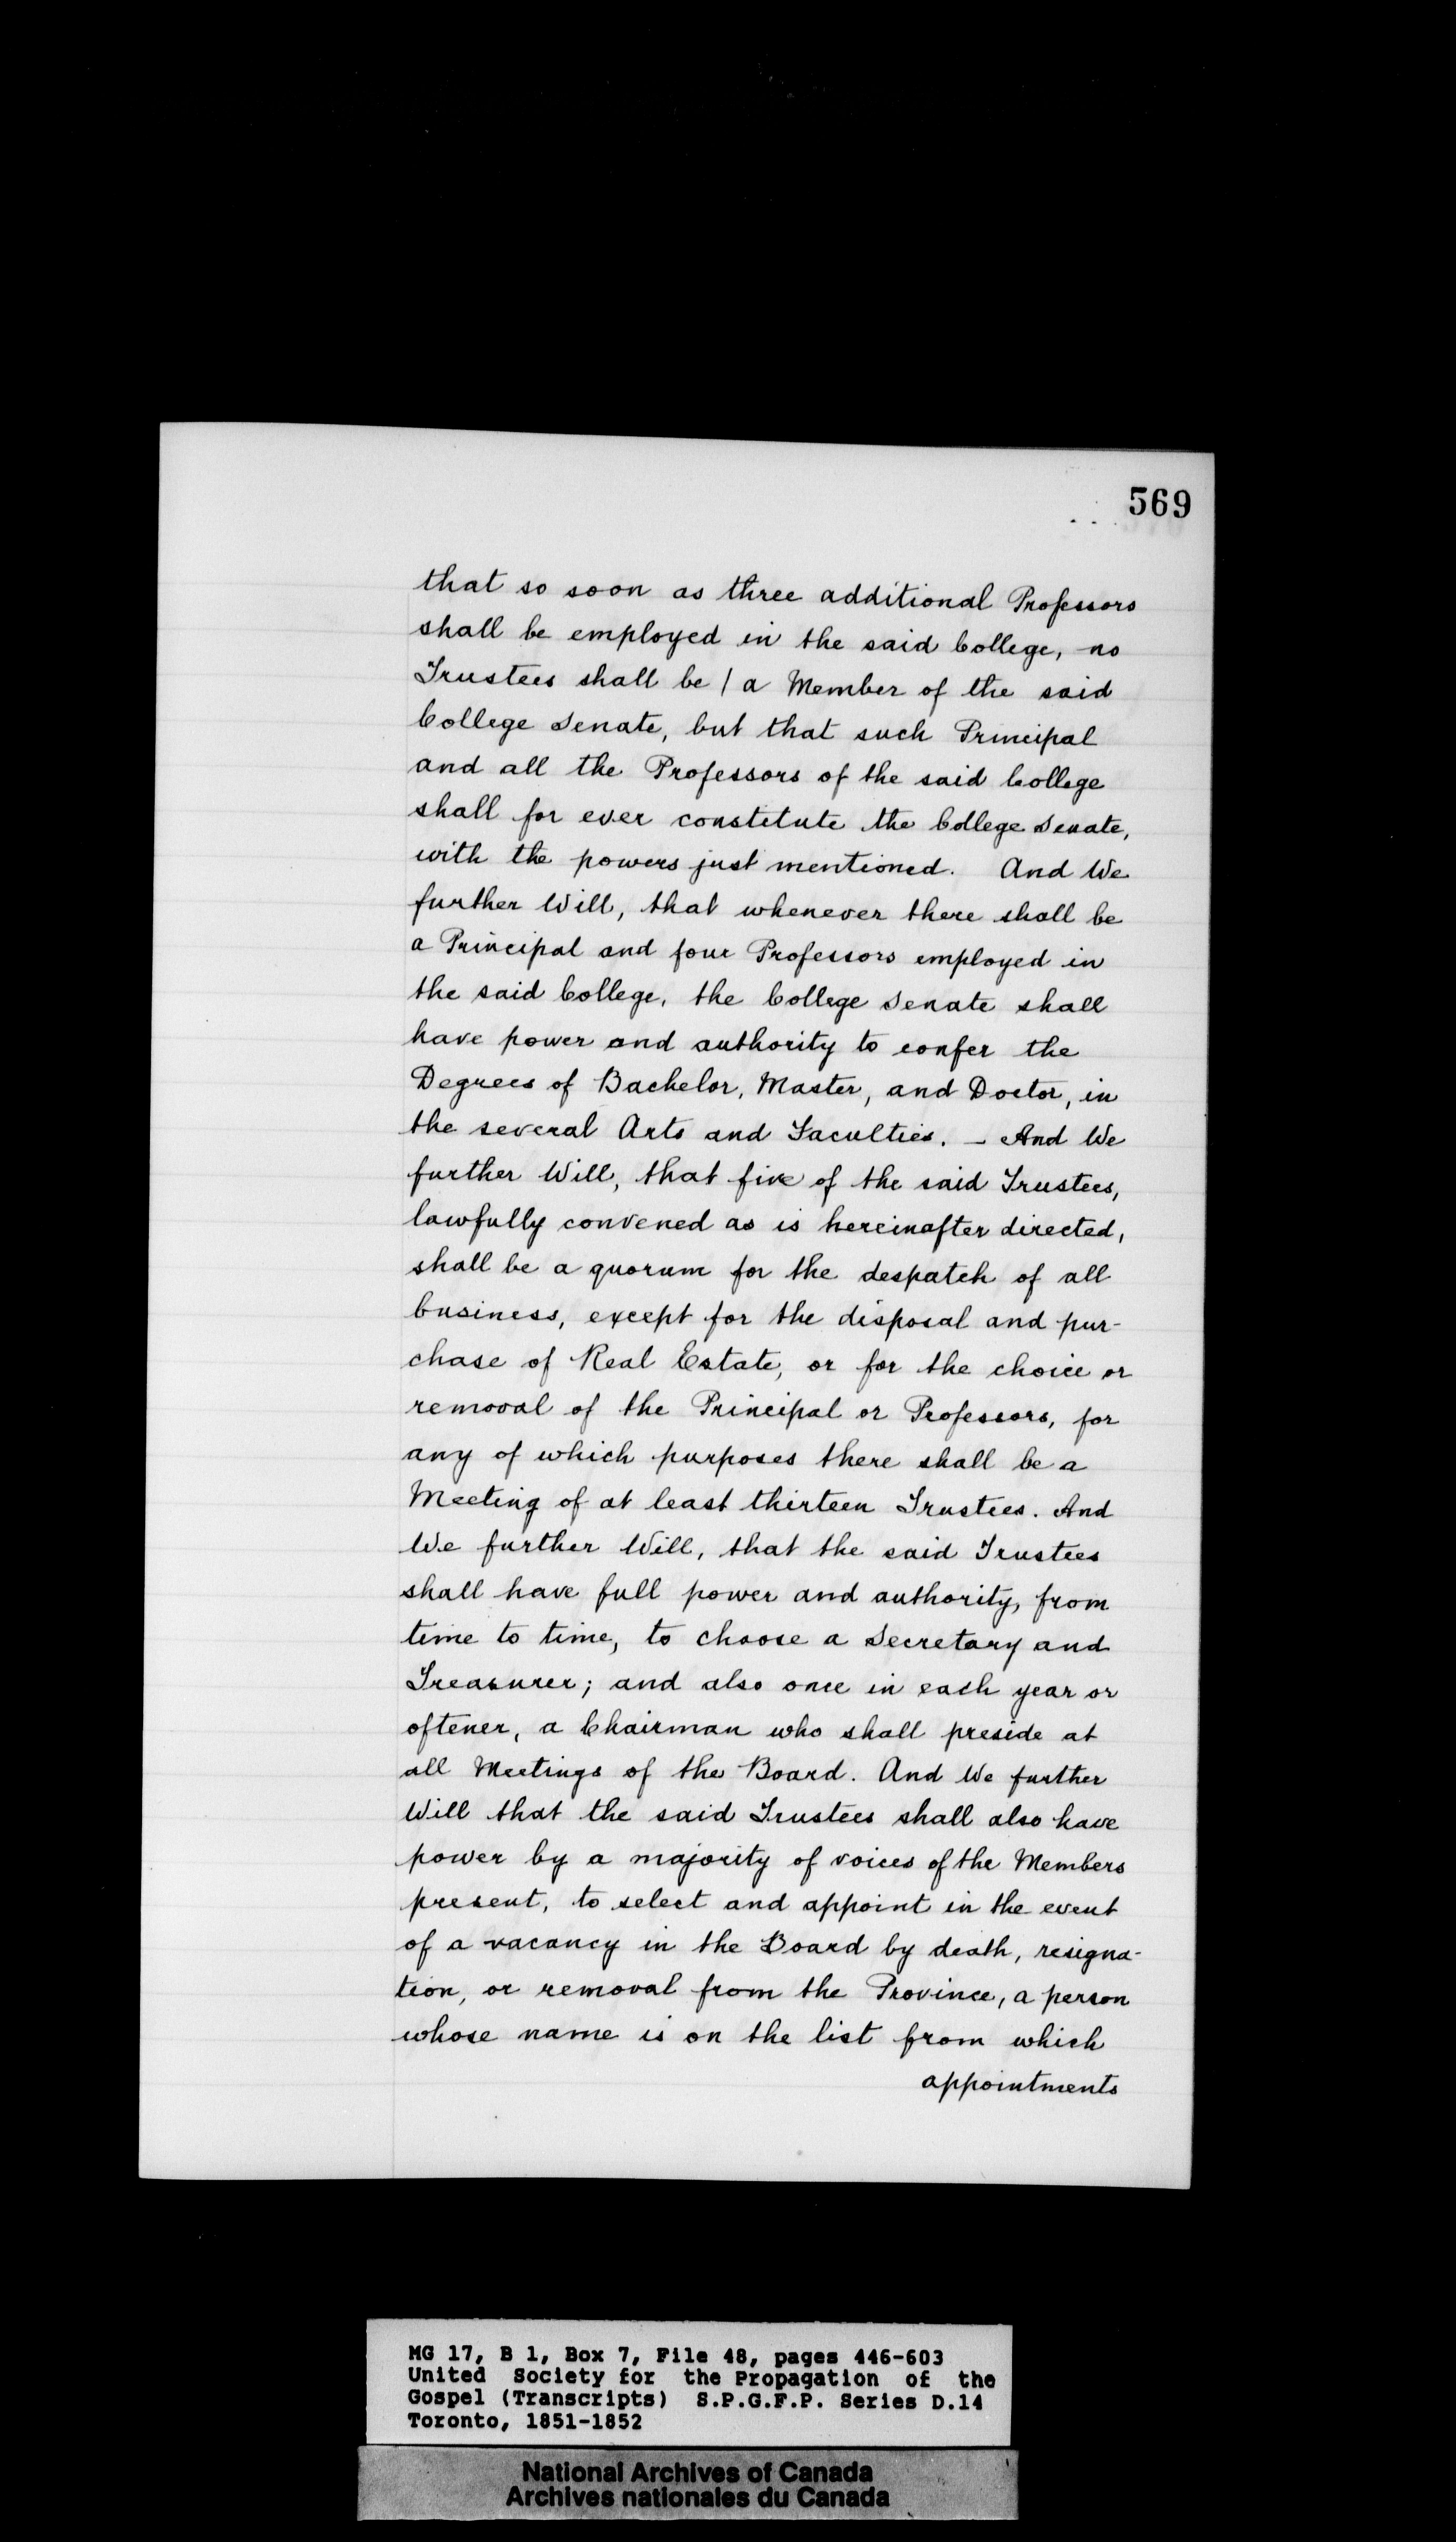 569
that so soon as three additional Professors
shall be employed in the said College, no
Trustees shall be / a Member of the said
College Senate, but that such Principal
and all the Professors of the said College
shall for ever constitute the College Senate,
with the powers just mentioned. And We
further Will, that whenever there shall be
a Principal and four Professors employed in
the said College, the College Senate shall
have power and authority to confer the
Degrees of Bachelor, Master, and Doctor, in
the several Arts and Faculties. - And We
further Will, that five of the said Trustees,
lawfully convened as is hereinafter directed,
shall be a quorum for the despatch of all
business, except for the disposal and pur-
chase of Real Estate, or for the choice or
removal of the Principal or Professors, for
any of which purposes there shall be a
Meeting of at least thirteen Trustees. And
We further Will, that the said Trustees
shall have full power and authority, from
time to time, to choose a Secretary and
Treasurer; and also once in each year or
oftener, a Chairman who shall preside at
all Meetings of the Board. And We further
Will that the said Trustees shall also have
power by a majority of voices of the Members
present, to select and appoint in the event
of a vacancy in the Board by death, resigna-
tion, or removal from the Province, a person
whose name is on the list from which
appointments
MG 17, B 1, Box 7, File 48, pages 446-603
United Society for the Propagation of the
Gospel (Transcripts) S.P.G.F.P. Series D.14
Toronto, 1851-1852
National Archives of Canada
Archives nationales du Canada